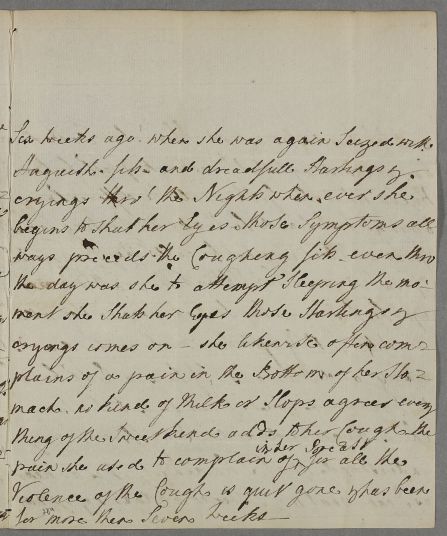 Six weeks ago when she was again Seized with
Anguish fits and dreadfull Startings &
cryings thro' the Night when ever she
begins to shut her Eyes those Symptoms all
ways preceeds the Cougheng fits even thro
the day was she to attempt Sleeping the mo
ment she Shuts her Eyes those Startings &
cryengs comes on – she likewise often com
plains of a pain in the Bottom of her Sto=
mach no kind of Milk or Slops agrees every
thing of the Sweet kend adds to her Cough the
in her Breast
pain she used to complain of for all the
Violence of the Cough is quit gone & has been
for more then Seven weeks –